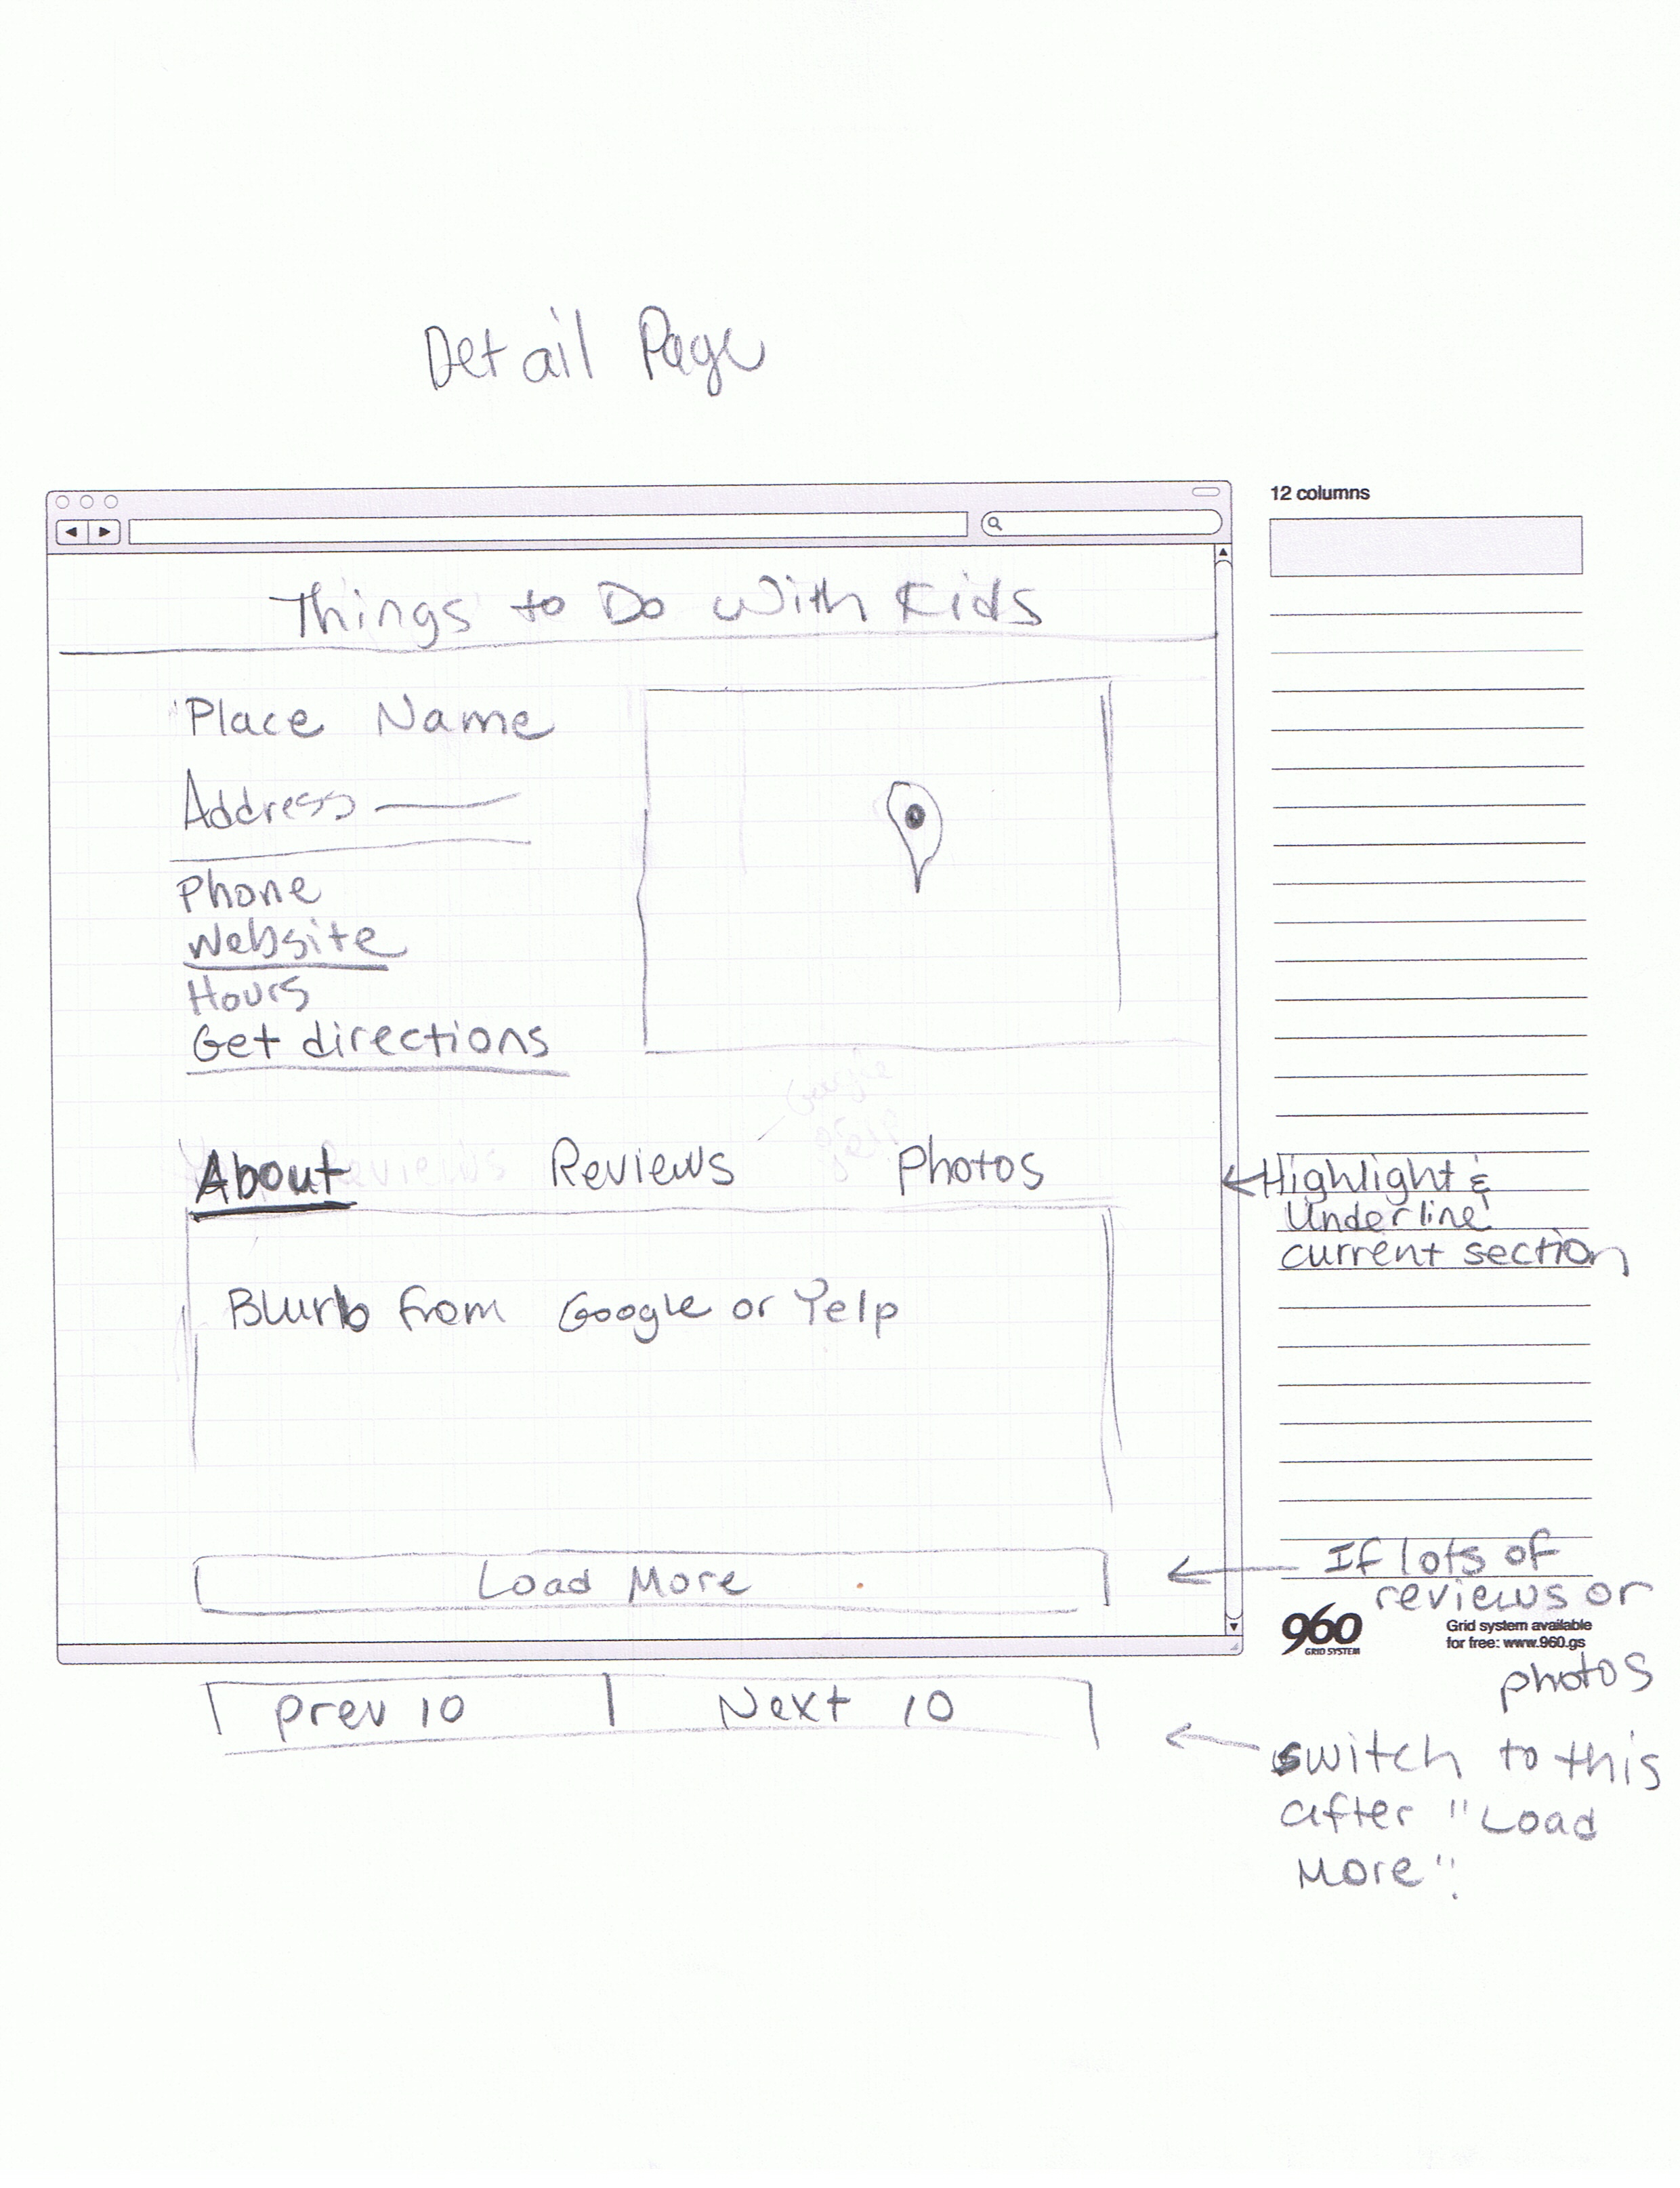 Detail Page
12 columns
Things to Do With Kids
Place Name
Address
Phone
Website
Hours
Get directions
About Reviews Photos
Highlight &
Underline
current section
Blurb from Google or Yelp
Load More
If lots of
reviews or
photos
960
GRID SYSTEM
Grid system available
for free: www.960.gs
Prev 10 Next 10
switch to this
after "Load
More".